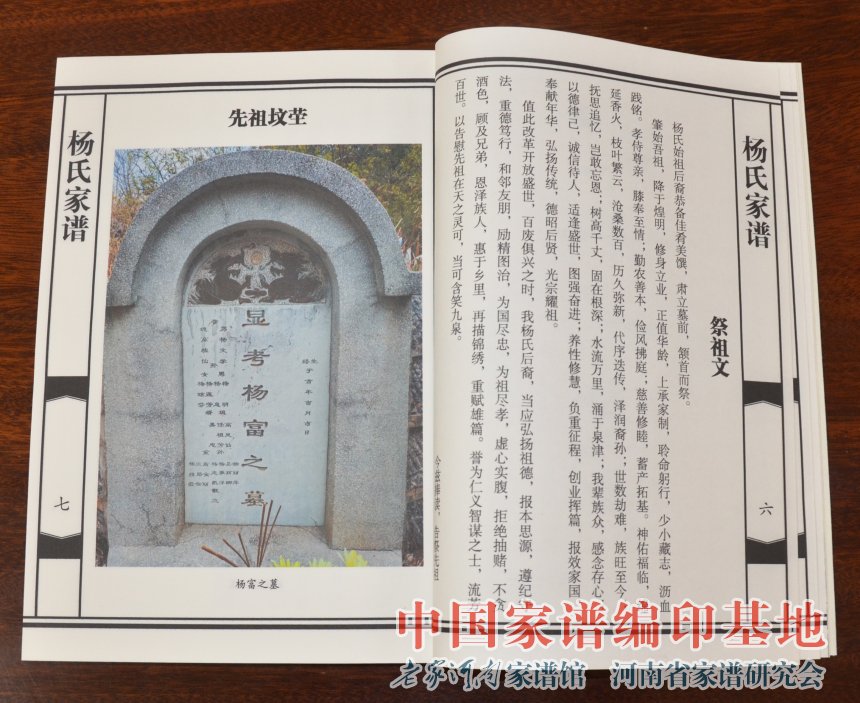 杨氏家谱
六
祭祖文
杨氏始祖后裔恭备佳肴美馔，肃立墓前，颔首而祭。
肇始吾祖，降于煌明，修身立业，正值华龄，上承家制，聆命躬行，少小藏志，沥血
践铭。孝侍尊亲，膝奉至情；勤农善本，俭风拂庭；慈善修睦，蓄产拓基。神佑福临，
延香火，枝叶繁云，沧桑数百，历久弥新，代序迭传，泽润裔孙；世数劫难，族旺至今
抚思追忆，岂敢忘恩；树高千丈，固在根深；水流万里，涌于泉津；我辈族众，感念存心，
以德律己，诚信待人，适逢盛世，图强奋进；养性修慧，负重征程，创业挥篇，报效家国
奉献年华，弘扬传统，德昭后贤，光宗耀祖。
值此改革开放盛世，百废俱兴之时，我杨氏后裔，当应弘扬祖德，报本思源，遵纪
法，重德笃行，和邻友朋，励精图治，为国尽忠，为祖尽孝，虚心实腹，拒绝抽赌，不贪
酒色，顾及兄弟，恩泽族人，惠于乡里，再描锦绣，重赋雄篇。誉为仁义智谋之士，流芳
百世。以告慰先祖在天之灵可，当可含笑九泉。
告祭先祖
杨氏家谱
七
先祖坟茔
显考杨富之墓
杨富之墓
中国家谱编印基地
老家河南家谱馆 河南省家谱研究会